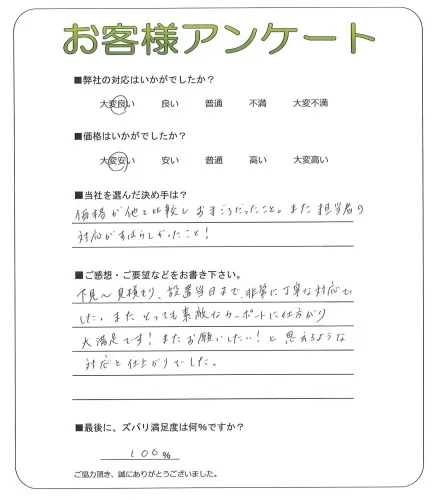 お客様アンケート
■弊社の対応はいかがでしたか?
大変良い 良い 普通 不満 大変不満
■価格はいかがでしたか?
大変安い 安い 普通 高い 大変高い
■当社を選んだ決め手は?
価格が他と比較しおまごろだったこと。また担当者の
対応がすばらしかったこと!
■ご感想・ご要望などをお書き下さい。
下見〜見積もり、設置当日まで、非常に丁寧な対応で
した。また とっても素敵なカーポートに仕上がり
大満足です!またお願いしたい!と思えるような
対応と仕上がりでした。
■最後に、ズバリ満足度は何%ですか?
100%
ご協力頂き、誠にありがとうございました。